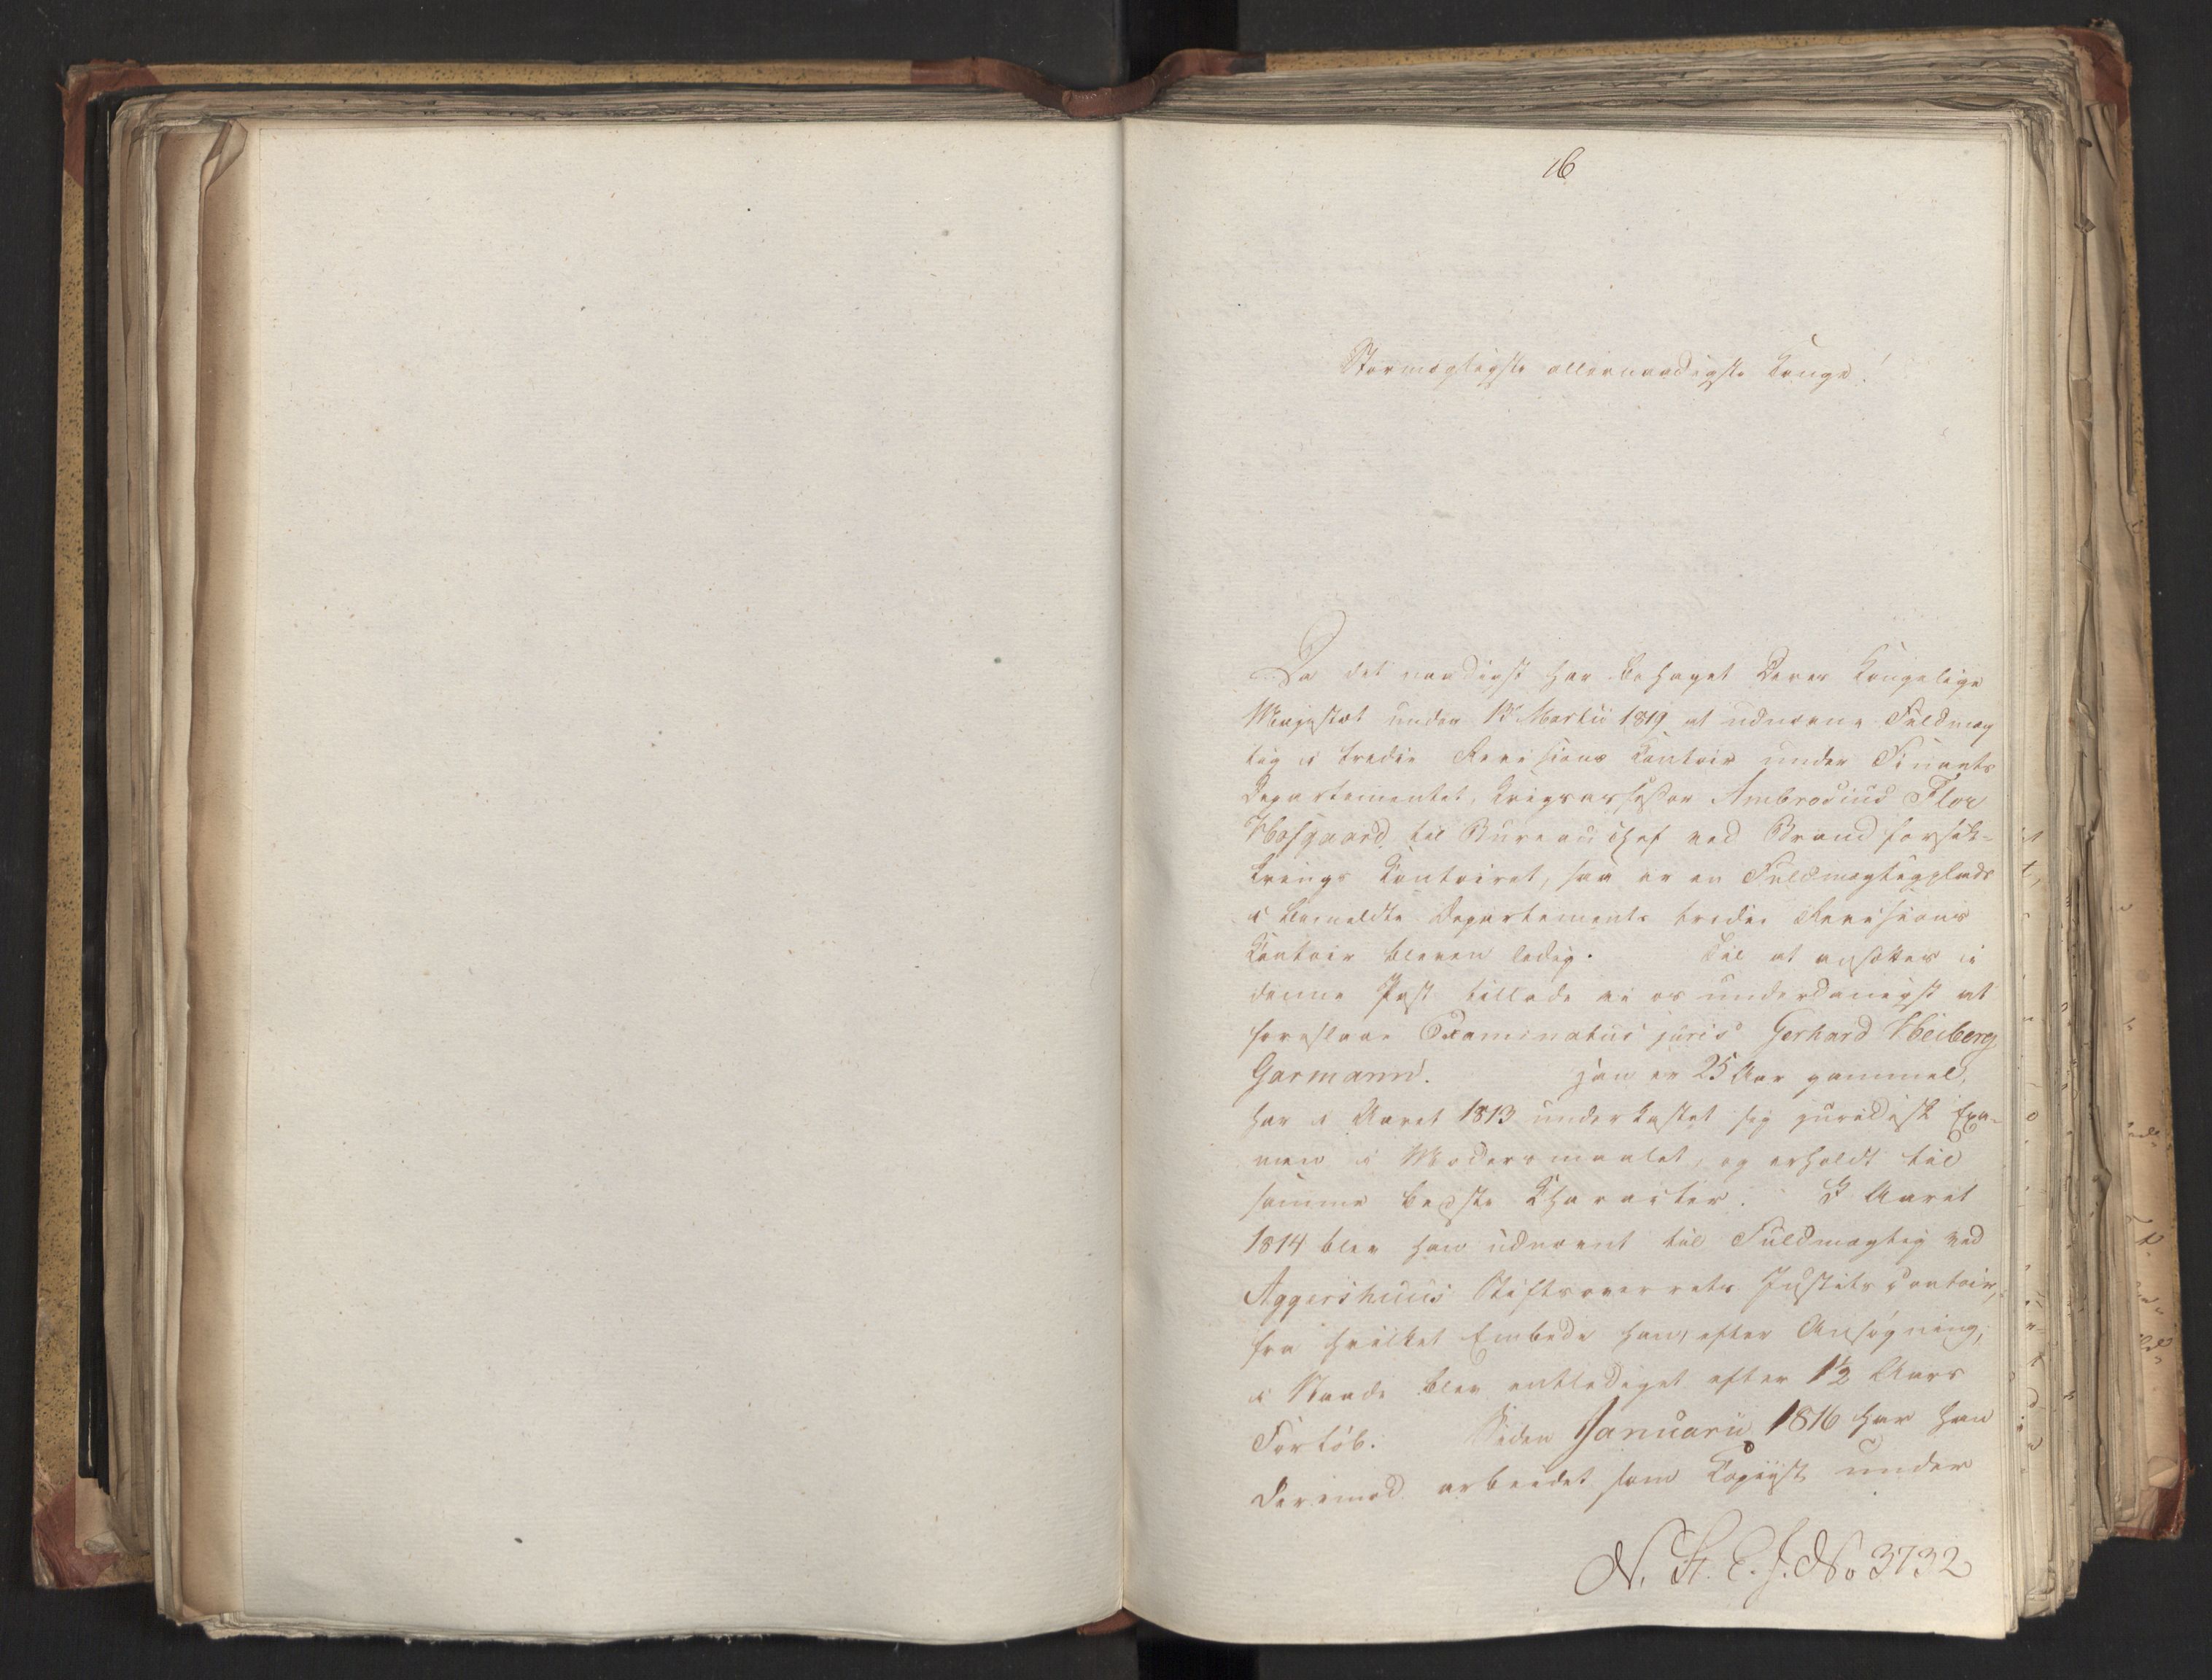 16
Stormægtigste allernaadigste Konge!
Da det naadigst har behaget Deres Kongelige
Majestæt under 13 Martii 1819 at udnævne Fuldmæg
tig i tredie Revisions Contoir under Finants
Departementet, Krigsassessor Ambrosius Flor
Hofgaard til Bureau Chef ved Brandforsik-
krings Contoiret, saa er en Fuldmægtigplads
i bemeldte Departements tredie Revisions
Contoir bleven ledig. Til at ansættes i
denne Post tillade vi os underdanigst at
foreslaae Examinatus juris Gerhard Heiberg
Garmann. Han er 25 Aar gammel,
har i Aaret 1813 underkastet sig juridisk Exa-
men i Modersmaalet, og erholdt til
samme bedste Character. I Aaret
1814 blev han udnævnt til Fuldmægtig ved
Aggershuus Stiftsoverrets Justits Contoir,
fra hvilket Embede han, efter Ansøgning,
i Naade blev entlediget efter 1½ Aars
Forløb. Siden Januarii 1816 har han
derimod arbeidet som Copiist under
N. St. E. J. No 3732